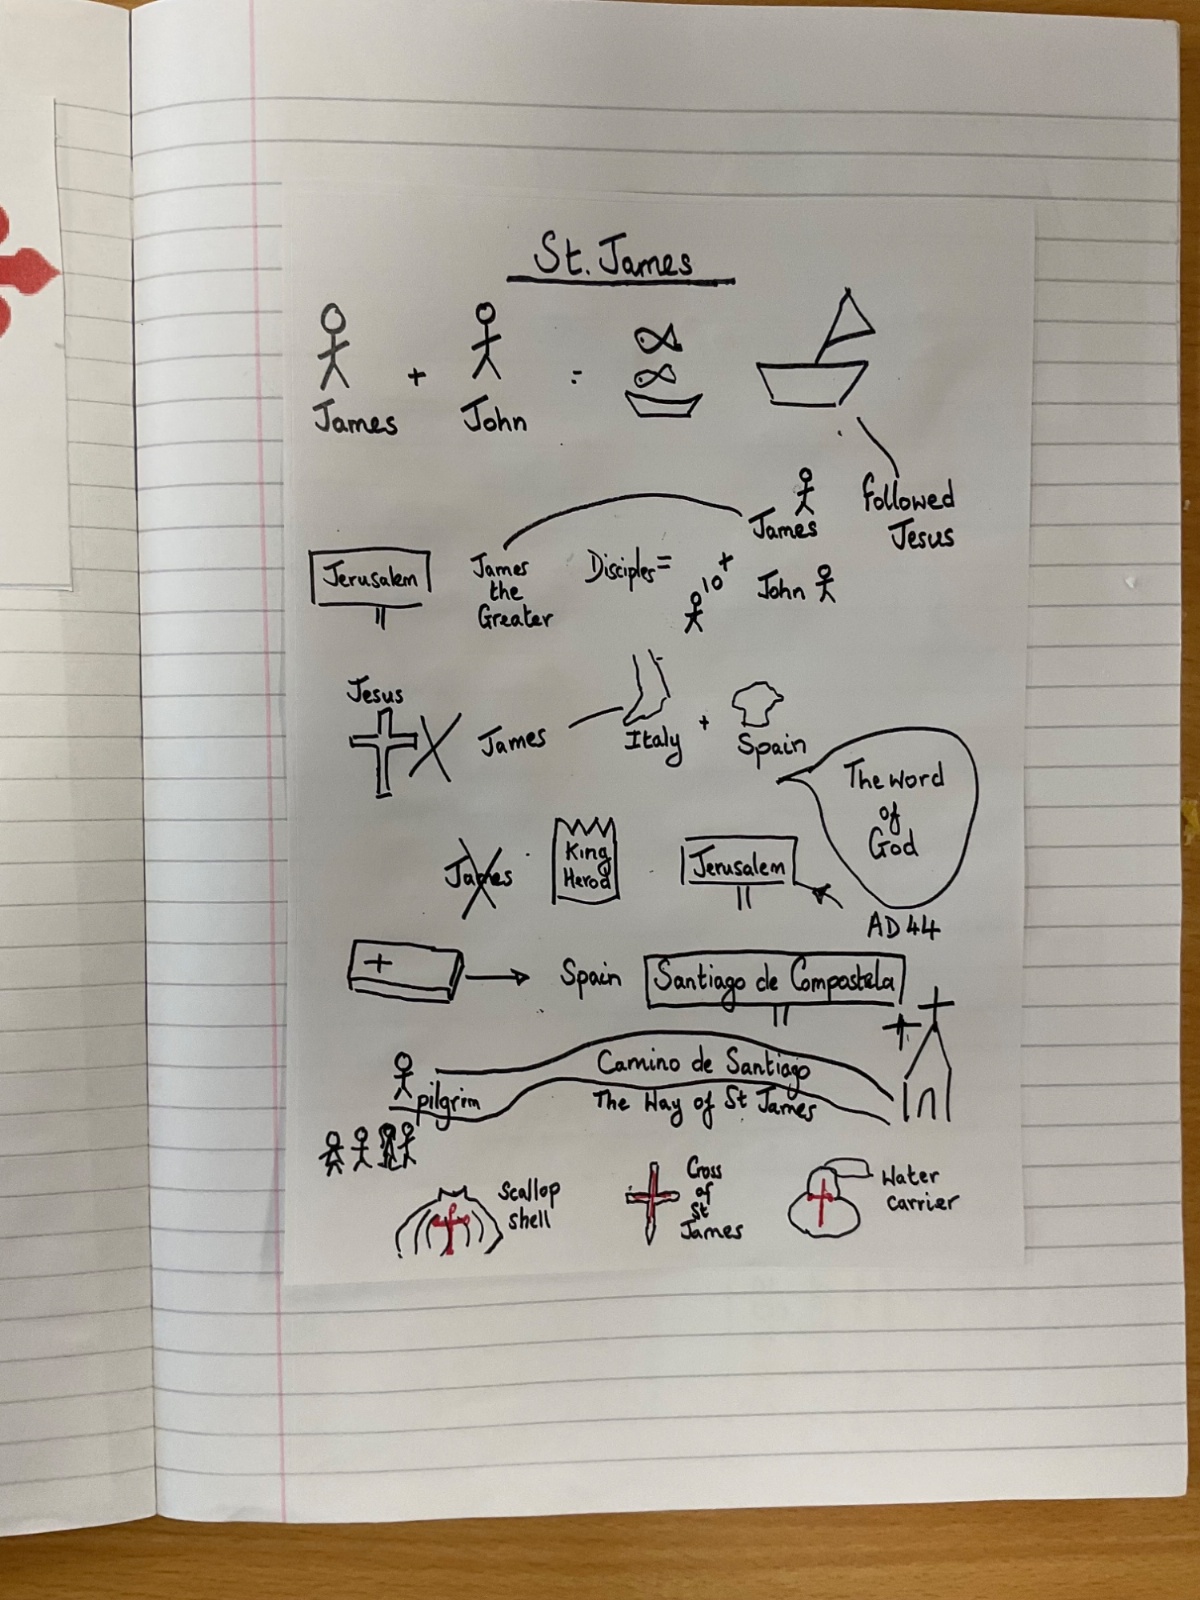 St. James
James + John =
followed
Jesus
James
Jerusalem
James
the
Greater
Disciples =
10 +
John
Jesus
James
Italy + Spain
The word
of
God
James
King
Herod
Jerusalem
AD 44
Spain
Santiago de Compostela
Camino de Santiago
pilgrim
The Way of St James
Scallop
shell
Cross
of
St
James
Water
carrier